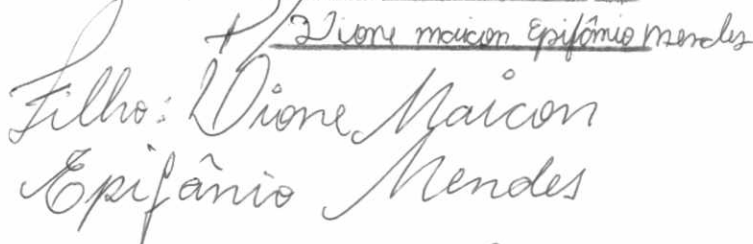 P/ Dione maicon Epifômio Mendes
Filho: Dione Maicon
Epifânio Mendes